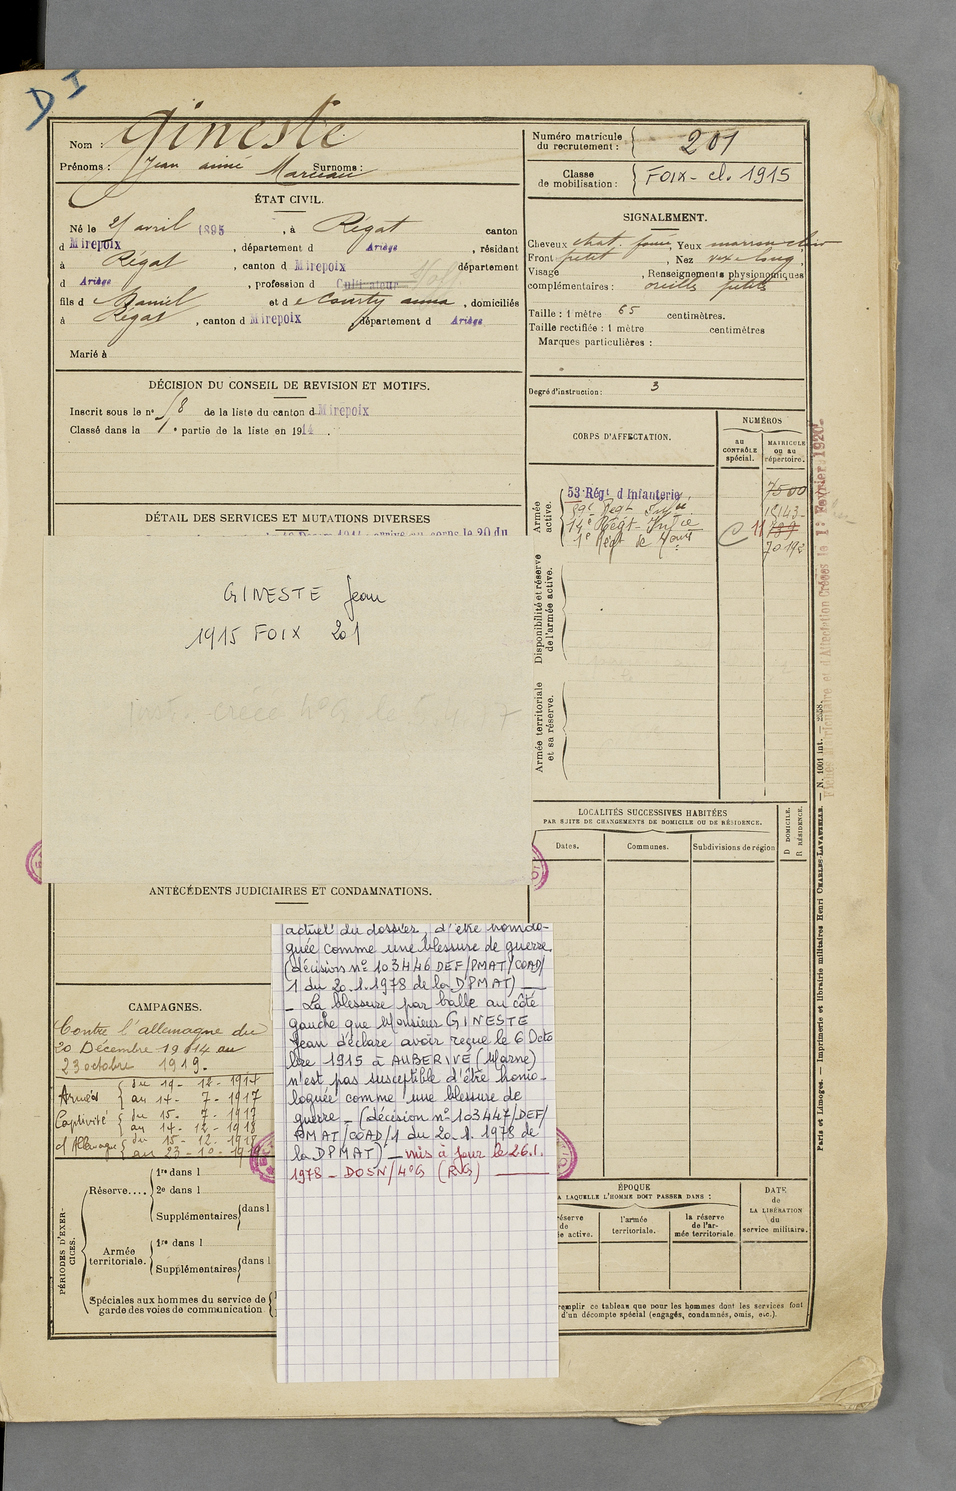 D I
Nom : Gineste
Prénoms : Jean aimé Marceau Surnoms :
Numéro matricule
du recrutement : 201
Classe
de mobilisation : FOIX - cl. 1915
ÉTAT CIVIL.
Né le 21 avril 1895, à Régat canton
d Mirepoix, département d Ariège, résidant
à Régat, canton d Mirepoix département
d Ariège, profession d Cultivateur
fils d e Daniel et d e Courty anna, domiciliés
à Régat, canton d Mirepoix, département d Ariège
Marié à
SIGNALEMENT.
Cheveux chat. foncé, Yeux marron clair
Front petit, Nez
Visage , Renseignements physionomiques
complémentaires : oreilles petites
Taille : 1 mètre 65 centimètres.
Taille rectifiée : 1 mètre centimètres
Marques particulières :
Degré d'instruction : 3
DÉCISION DU CONSEIL DE REVISION ET MOTIFS.
Inscrit sous le n° 58 de la liste du canton d Mirepoix
Classé dans la 1e partie de la liste en 1914.
DÉTAIL DES SERVICES ET MUTATIONS DIVERSES
CORPS D'AFFECTATION.
NUMÉROS
au
CONTRÔLE
spécial.
MATRICULE
ou au
répertoire.
Armée
active.
53 Régt d'Infanterie 7500
59e Régt Infie 15143
14e Régt Infie C 11
1e Régt de 70192
Disponibilité et réserve
de l'armée active.
Armée territoriale
et sa réserve.
GINESTE Jean
1915 FOIX 201
LOCALITÉS SUCCESSIVES HABITÉES
PAR SUITE DE CHANGEMENTS DE DOMICILE OU DE RÉSIDENCE.
Dates. Communes. Subdivisions de région
D DOMICILE.
R RÉSIDENCE.
ANTÉCÉDENTS JUDICIAIRES ET CONDAMNATIONS.
actuel du dossier, d'être homolo-
guée comme une blessure de guerre
(décision n° 103446 DEF/PMAT/COAD/
1 du 20.1.1978 de la DPMAT) —
- La blessure par balle au côté
gauche que Monsieur GINESTE
Jean déclare avoir reçue le 6 Octo
bre 1915 à AUBERIVE (Marne)
n'est pas susceptible d'être homo-
loguée comme une blessure de
guerre - (décision n° 103447/DEF/
PMAT/COAD/1 du 20.1.1978 de
la DPMAT) - mis à jour le 26.1.
1978 - DOSN/4°G (RG) —
CAMPAGNES.
Contre l'allemagne du
20 Décembre 1914 au
23 octobre 1919.
Armées { du 19-12-1914
au 14-7-1917
Captivité { du 15-7-1917
au 14-12-1918
d'Allemagne { du 15-12-1918
au 23-10-1919
PÉRIODES D'EXER-
CICES.
Réserve....
1re dans l
2e dans l
Supplémentaires dans l
Armée
territoriale.
1re dans l
Supplémentaires dans l
Spéciales aux hommes du service de
garde des voies de communication
ÉPOQUE
A LAQUELLE L'HOMME DOIT PASSER DANS :
DATE
de
LA LIBÉRATION
du
service militaire.
réserve
de
e active.
l'armée
territoriale.
la réserve
de l'ar-
mée territoriale.
remplir ce tableau que pour les hommes dont les services font
d'un décompte spécial (engagés, condamnés, omis, etc.).
Paris et Limoges. — Imprimerie et librairie militaires Henri CHARLES-LAVAUZELLE. — N. 1001 int. —
Fiches Matriculaire et d'Affectation Créées le 1er Février 1920